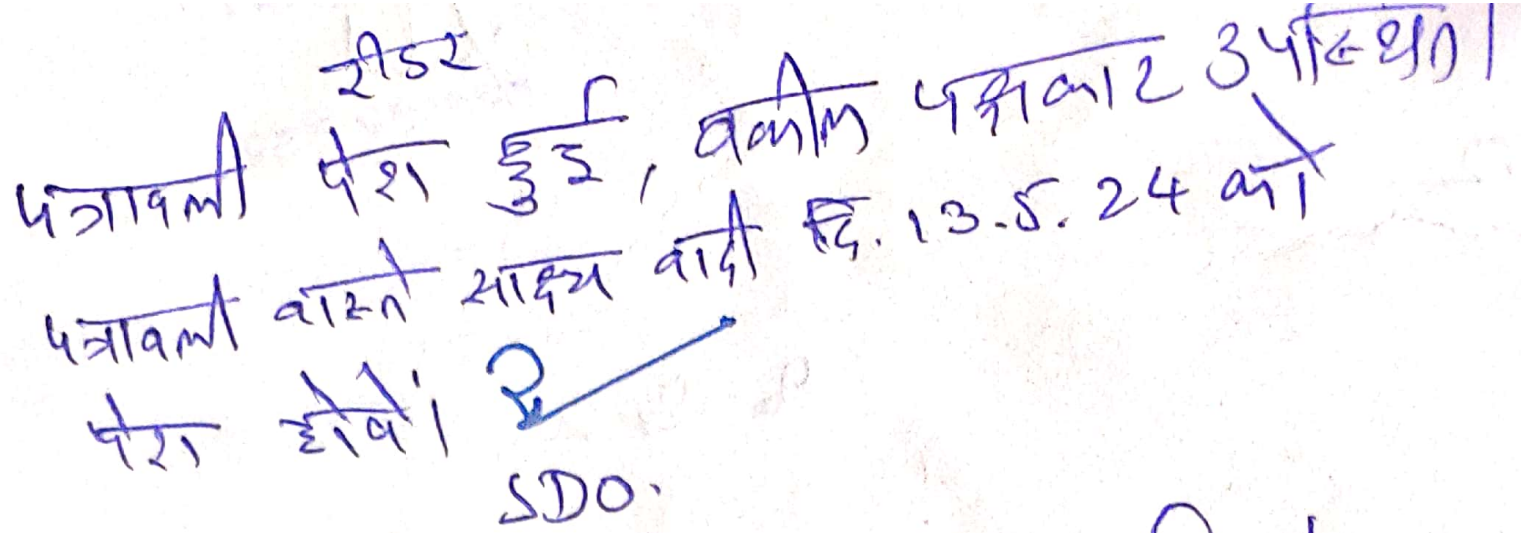 रीडर
पत्रावली पेश हुई, वकील पक्षकार उपस्थित।
पत्रावली वास्ते साक्ष्य वादी दि. 13.5.24 को
पेश होवें।
SDO.